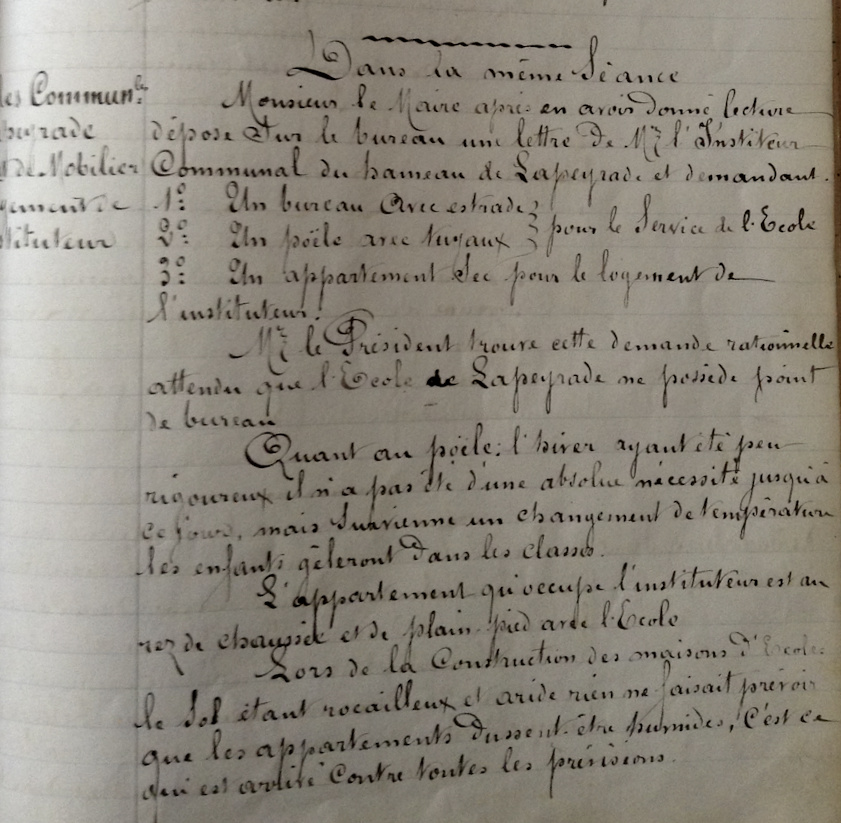 Dans la même Séance
les Commun.les
Monsieur le Maire après en avoir donné lecture
peyrade
dépose sur le bureau une lettre de Mr. l'Institeur
de Mobilier
Communal du hameau de Lapeyrade et demandant.
gement de
1º: Un bureau avec estrade }
stituteur
2º: Un poële avec tuyaux } pour le Service de l'Ecole
3º: Un appartement Sec pour le logement de
l'instituteur.
Mr. le Président trouve cette demande rationnelle
attendu que l'Ecole de Lapeyrade ne possède point
de bureau
Quant au poële; l'hiver ayant été peu
rigoureux il n'a pas été d'une absolue nécessité jusqu'à
ce jour, mais Survienne un changement de température
les enfants gêleront dans les classes.
L'appartement qu'occupe l'instituteur est au
rez de chaussée et de plain pied avec l'Ecole
Lors de la Construction des maisons d'Ecole
le Sol étant rocailleux et aride rien ne faisait prévoir
que les appartements dussent être humides, C'est ce
qui est arrivé Contre toutes les prévisions.